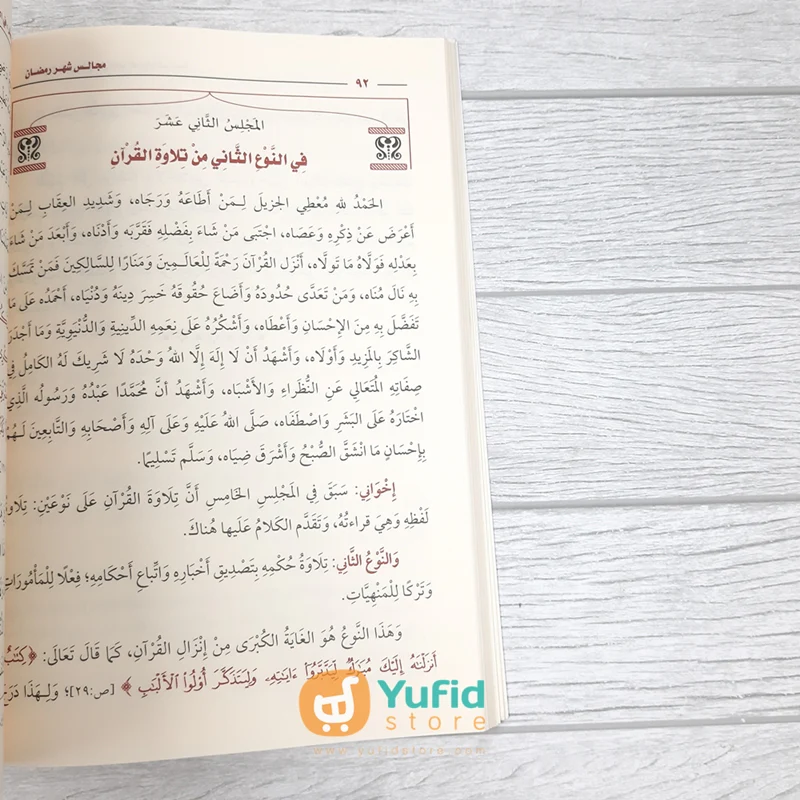 مجالس شهر رمضان
٩٢
المَجْلِسُ الثَّانِي عَشَرَ
فِي النَّوْعِ الثَّانِي مِنْ تِلَاوَةِ القُرْآنِ
الحَمْدُ للهِ مُعْطِي الجَزِيلَ لِـمَنْ أَطَاعَهُ وَرَجَاه، وَشَدِيدِ العِقَابِ لِـمَنْ
أَعْرَضَ عَنْ ذِكْرِهِ وَعَصَاه، اجْتَبَى مَنْ شَاءَ بِفَضْلِهِ فَقَرَّبَه وَأَدْنَاه، وَأَبْعَدَ مَنْ شَاءَ
بِعَدْلِهِ فَوَلَّاهُ مَا تَولَّاه، أَنْزَل القُرْآنَ رَحْمَةً لِلْعَالَـمِينَ وَمَنَارًا لِلسَّالِكِينَ فَمَنْ تَمَسَّكَ
بِهِ نَالَ مُنَاه، وَمَنْ تَعَدَّى حُدُودَهُ وَأَضَاعَ حُقُوقَهُ خَسِرَ دِينَهُ وَدُنْيَاه، أَحْمَدُه عَلَى مَا
تَفَضَّلَ بِهِ مِنَ الإِحْسَانِ وَأَعْطَاه، وَأَشْكُرُهُ عَلَى نِعَمِهِ الدِّينِيةِ وَالدُّنْيَوِيَّةِ وَمَا أَجْدَرَ
الشَّاكِرَ بِالمَزِيدِ وَأَوْلَاه، وَأَشْهَدُ أَنْ لَا إِلَهَ إِلَّا اللهُ وَحْدَهُ لَا شَرِيكَ لَهُ الكَامِلُ فِي
صِفَاتِهِ المُتَعَالِي عَنِ النُّظَرَاءِ وَالأَشْبَاه، وَأَشْهَدُ أَنَّ مُحَمَّدًا عَبْدُهُ وَرَسُولُه الَّذِي
اخْتَارَهُ عَلَى البَشَرِ وَاصْطَفَاه، صَلَّى اللهُ عَلَيْهِ وَعَلَى آلِهِ وَأَصْحَابِهِ وَالتَّابِعِينَ لَـهُمْ
بِإِحْسَانٍ مَا انْشَقَّ الصُّبْحُ وَأَشْرَقَ ضِيَاه، وَسَلَّم تَسْلِيمًا.
إِخْوَانِي: سَبَقَ فِي المَجْلِسِ الخَامِسِ أَنَّ تِلَاوَةَ القُرْآنِ عَلَى نَوْعَيْنِ: تِلَاوَةُ
لَفْظِهِ وَهِيَ قِراءتُهُ، وَتَقَدَّم الكَلامُ عَلَيها هُناكَ.
وَالنَّوْعُ الثَّانِي: تِلَاوَةُ حُكْمِهِ بِتَصْدِيقِ أَخْبَارِهِ وَاتِّبَاعِ أَحْكَامِهِ؛ فِعْلًا لِلْمَأْمُورَاتِ
وَتَرْكًا لِلْمَنْهِيَّاتِ.
وَهَذَا النَّوْعُ هُوَ الغَايَةُ الكُبْرَى مِنْ إِنْزَالِ القُرْآنِ، كَمَا قَالَ تَعَالَى: ﴿كِتَٰبٌ
أَنزَلْنَٰهُ إِلَيْكَ مُبَٰرَكٌ لِّيَدَّبَّرُوٓا۟ ءَايَٰتِهِۦ وَلِيَتَذَكَّرَ أُو۟لُوا۟ ٱلْأَلْبَٰبِ﴾ [ص:٢٩]؛ وَلِـهَذَا دَرَجَ
Yufid
store
www.yufidstore.com